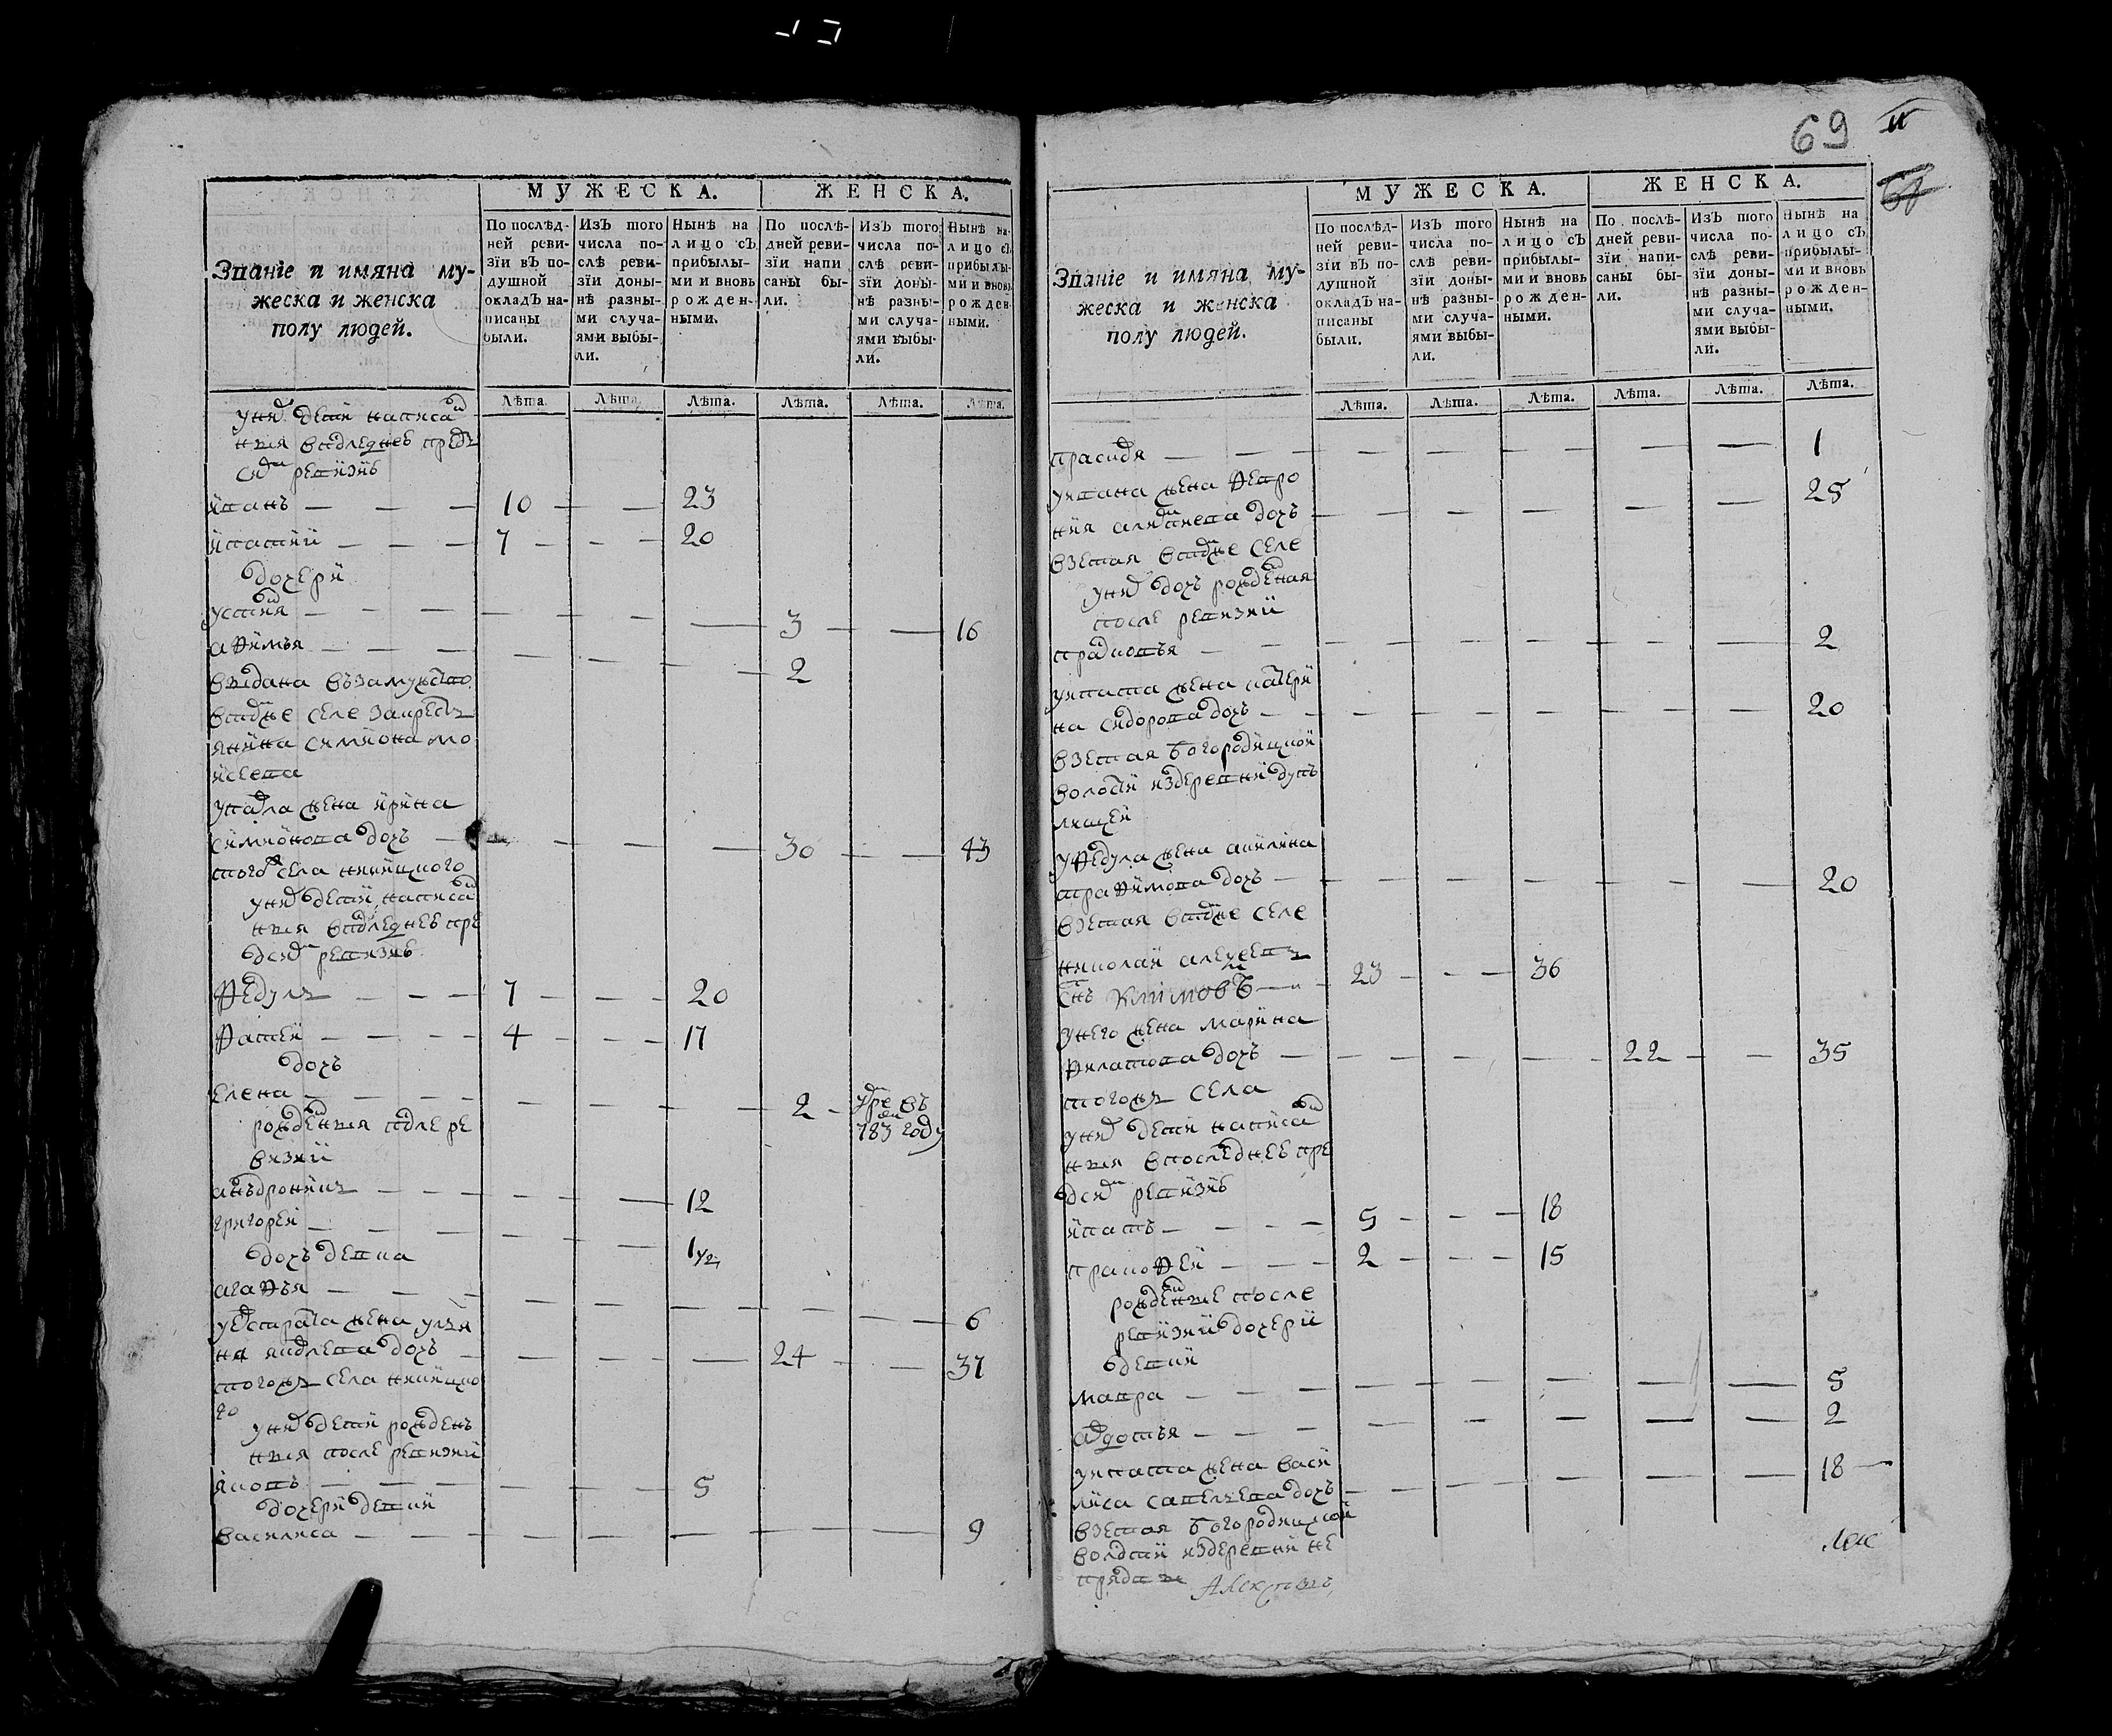 МУЖЕСКА. ЖЕНСКА.
Званіе и имяна му-
жеска и женска
полу людей.
По послѣд-
ней реви-
зїи вЪ по-
душной
окладЪ на-
писаны
были.
ИзЪ того
числа по-
слѣ реви-
зїи доны-
нѣ разны-
ми случа-
ями выбы-
ли.
Нынѣ на
лицо сЪ
прибылы-
ми и вновь
рожден-
ными.
По послѣ-
дней реви-
зїи напи
саны бы-
ли.
ИзЪ того
числа по-
слѣ реви-
зїи доны-
нѣ разны-
ми случа-
ями выбы-
ли.
Нынѣ на
лицо сЪ
прибылы-
ми и вновь
рожден-
ными.
Лѣта. Лѣта. Лѣта. Лѣта. Лѣта. Лѣта.
у них дети написан
ныя впоследнеѣ пред
сим ревизиѣ
иванъ 10 23
ипатий 7 20
дочери
устиня 3 16
афимья 2
выдана въ замужство
в том же селе за крестъ
янина симиона мо
исеева
у павла жена ирина
симионова дочь 30 43
того села
у них дети написан
ныя впоследнеѣ пре
д сим ревизиѣ
федулъ 7 20
фатей 4 17
дочь
елена 2 умре въ
783 году
рожденныя после ре
визии
анъдроникъ 12
григорей 1 1/2
дочь девка
агафья 6
у евстрата жена улья
на яковлева дочь 24 37
того жъ села
го
у них дети рожденъ
ныя после ревизии
яковъ 5
дочери девки
василиса 9
69
68
МУЖЕСКА. ЖЕНСКА.
Званіе и имяна му-
жеска и женска
полу людей.
По послѣд-
ней реви-
зїи вЪ по-
душной
окладЪ на-
писаны
были.
ИзЪ того
числа по-
слѣ реви-
зїи доны-
нѣ разны-
ми случа-
ями выбы-
ли.
Нынѣ на
лицо сЪ
прибылы-
ми и вновь
рожден-
ными.
По послѣ-
дней реви-
зїи напи-
саны бы-
ли.
ИзЪ того
числа по-
слѣ реви-
зїи доны-
нѣ разны-
ми случа-
ями выбы-
ли.
Нынѣ на
лицо сЪ
прибылы-
ми и вновь
рожден-
ными.
Лѣта. Лѣта. Лѣта. Лѣта. Лѣта. Лѣта.
1
у ивана жена февро 25
ния дочь
взетая в том же селе
у них дочь рожденая
после ревизии
2
у ипата жена катери
на сидорова дочь 20
взетая богородицкой
волости из деревни
у федула жена акилина
трафимова дочь 20
взетая в том же селе
николай алексеевъ
снъ Климовъ 23 36
у него жена марина
филатова дочь 22 35
того жъ села
у них дети написан
ныя впоследнеѣ пре
д сим ревизиѣ
ипатъ 5 18
пракофей 2 15
рожденные после
ревизии дочери
девки
мавра 5
авдотья 2
у ипата жена васи
лиса савельева дочь 18
взетая богородицкой
волости из деревни не